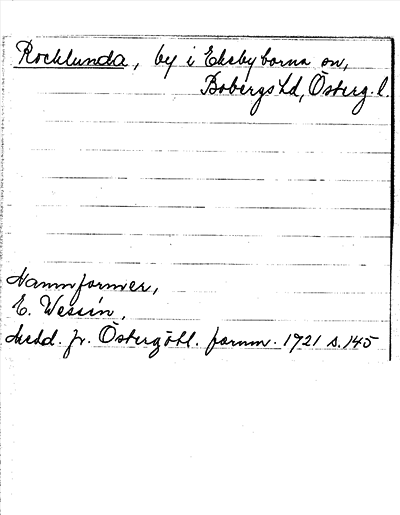 Rocklunda, by i Ekebyborna sn,
Bobergs hd, Österg. l.
Namnformer,
E. Wessén,
Medd. fr. Östergötl. fornm. 1921 s. 145